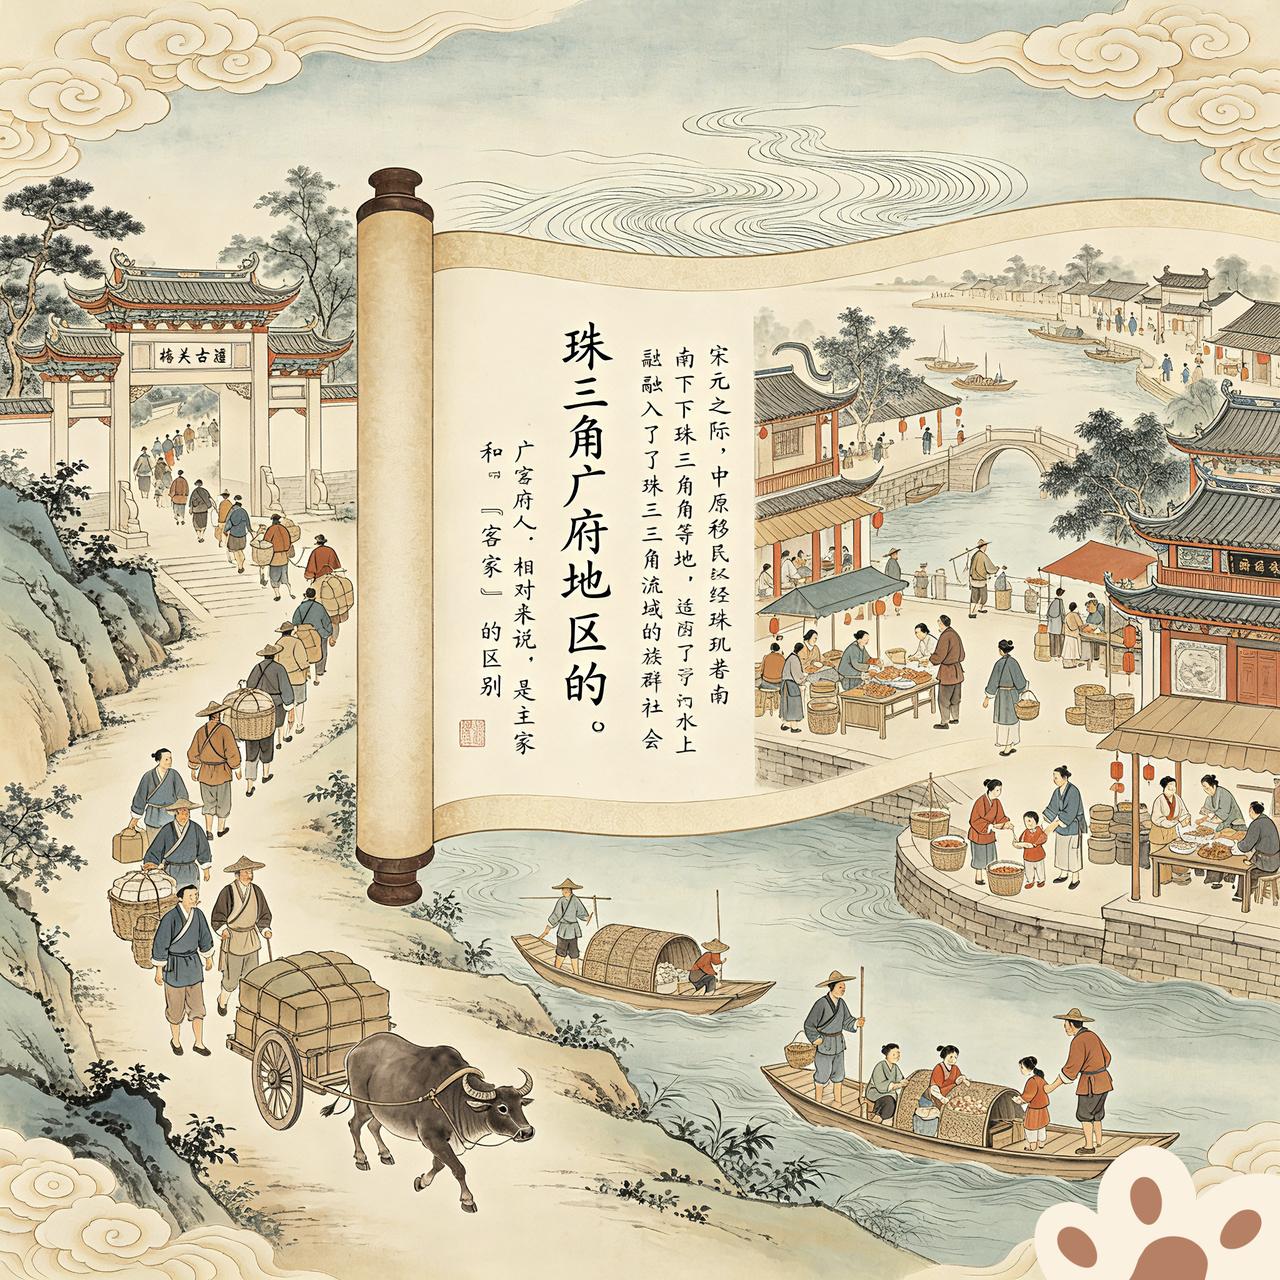 梅关古道
宋元之际，中原移民以经珠玑巷南
南下下珠三角角等地，适
了
水上
融融入了了珠三三角流域的族群社会
珠三角广府地区的。
广客府人．相对来说，是主家
和『『客家』的区别